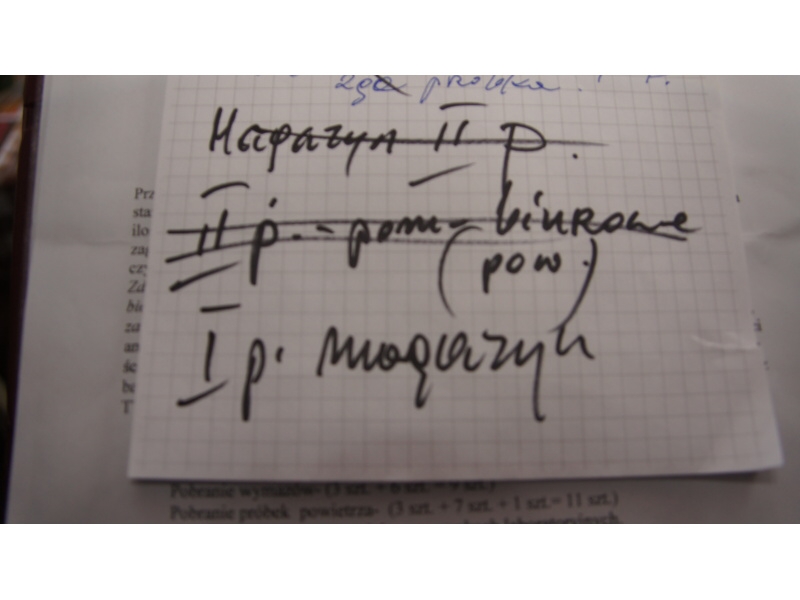 2ga próbka.
Magazyn II p.
II p. - pom. biurowe
(pow.)
I p. magazyn
Prz
sta
ilo
zap
czy
Zd
bie
za
an
śc
ba
T
Pobranie wymazów- (3 szt. + 6 szt. = 9 szt.)
Pobranie próbek powietrza- (3 szt. + 7 szt. + 1 szt.= 11 szt.)
laboratoryjnych